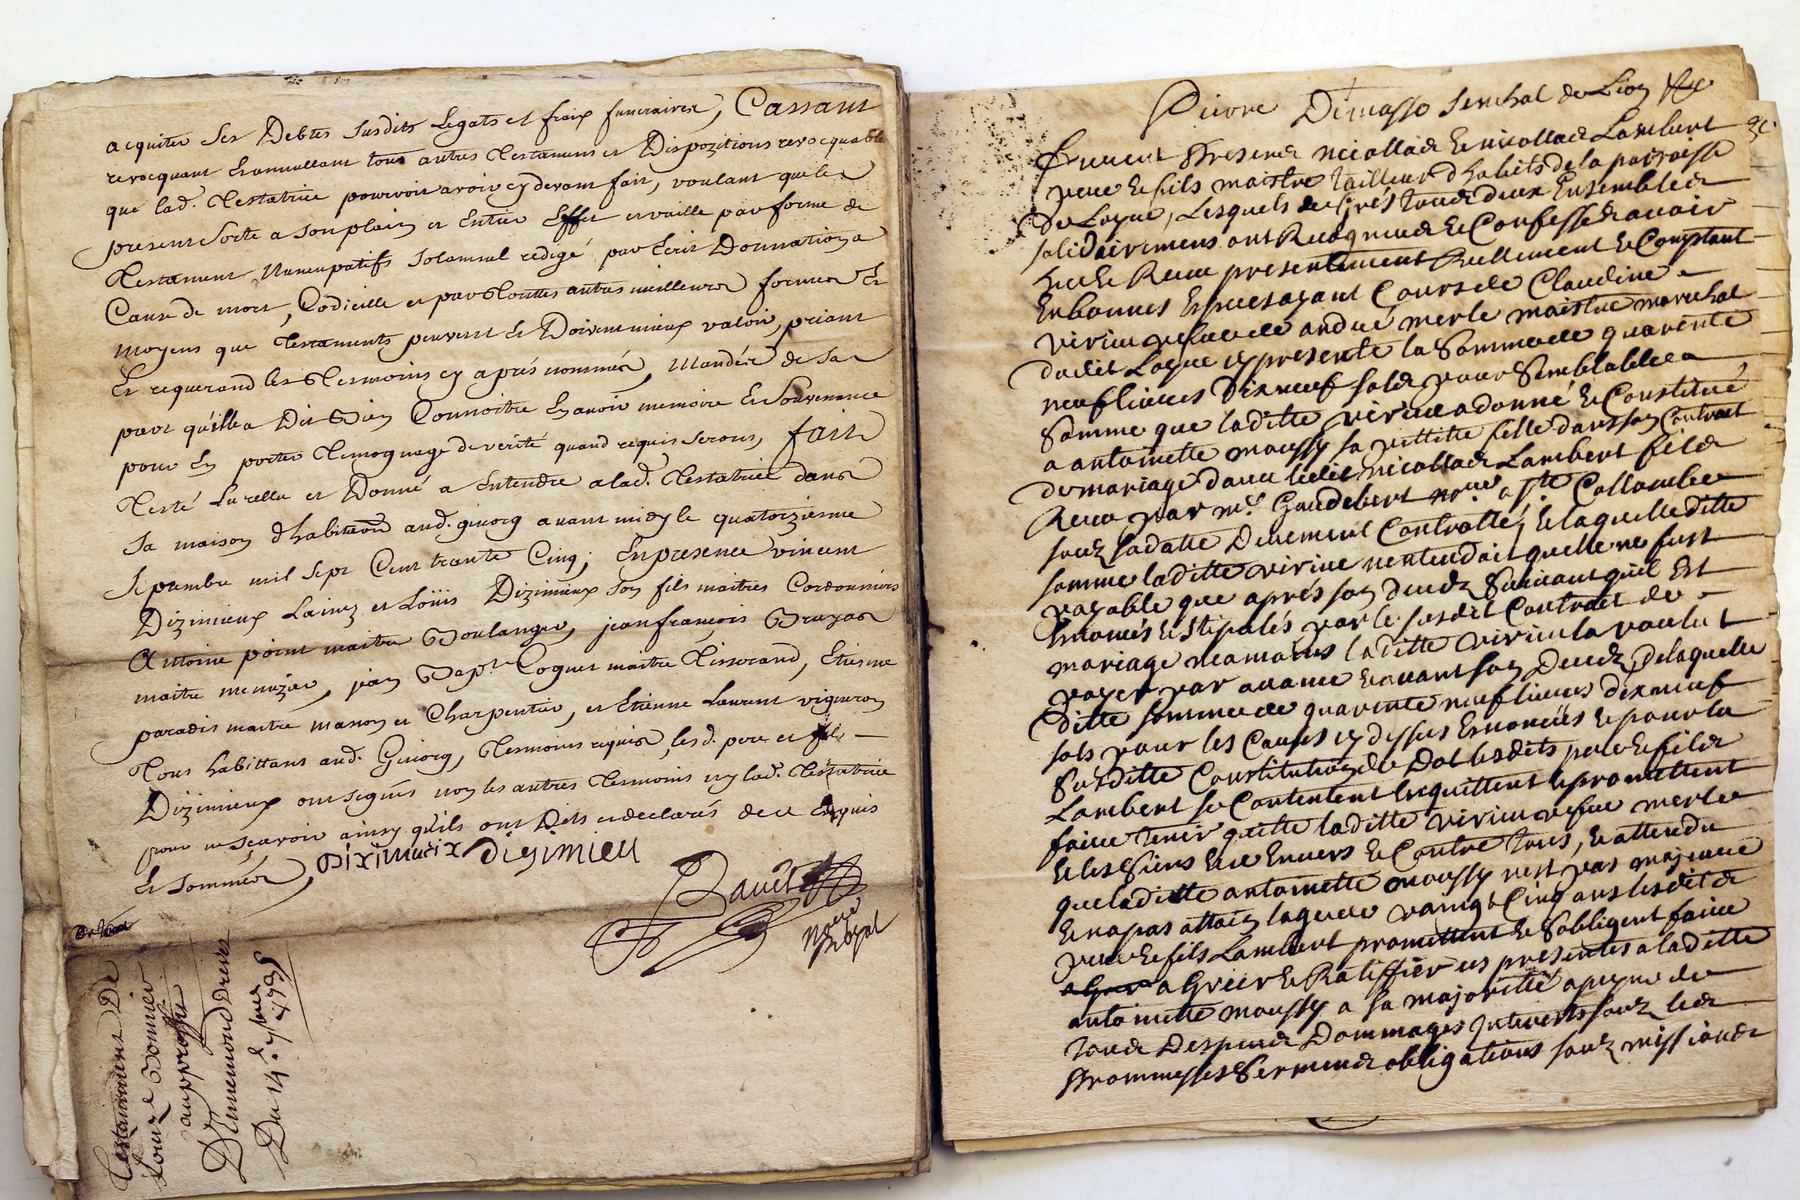 acquiter ses Debtes susdits Legats et fraix funeraires, Cassant
revocquant et annullant tous autres Testamens et Dispozitions revocquable
que lad. Testatrice pourroit avoir cy devant fait, voulant que le
present sorte a son plain et Entier Effet et vaille par forme de
Testament Nuncupatifs solamnel redigé par Ecrit Donnation a
Cause de mort, Codicille et par Touttes autres meilleures formes Et
moyens que Testaments peuvent Et Doivent mieux valoir, priant
Et requerand les Tesmoins cy aprés nommés, Mandés de sa
part qu'elle a Dit Bien Connoitre En avoir memoire Et Souvenance
pour En porter Temognage de verité quand requis seront, fait
Testé Lu rellu et Donné a Entendre a lad. Testatrice dans
sa maison d'habitation aud. givorg avant midy le quatorzieme
septembre mil sept Cent trante Cinq, En presence vincent
Dizimieux Lainez et Loüis Dizimieux son fils maitres Cordonniers
Antoine point maitre Boulanger, jean françois Bruyas
maitre menuzier, jean Bapte Coquet maitre Tisserand, Etienne
paradis maitre masson et Charpentier, et Etienne Laurent vigneron
Tous habittans aud. Givorg, Tesmoins requis, les d. pere et fils
Dizimieux ont signés non les autres Tesmoins ny lad. Testatrice
pour ne sçavoir ainsy qu'ils ont Dits et declarés de ce Enquis
Et sommés, Diximieix disimieu
nore Royal
Testament De
Louize Bonnier
au proffit
D'himmond Dreves
Du 14e 7bre 1735
Pierre Dumasso senchal de Lion &c
furent Presents nicollas Et nicollas Lambert
pere Et fils maistre Tailleur d'habits de la parroisse
de Loyre, Lesquels de grés Tous deux Ensembles
solidairemens ont Recognus Et Confessés avoir
heu Et Receu presentement Reellement Et Comptant
En bonnes Especes ayant Cours de Claudine
virieu vefue de andré merle maistre marechal
dudit Loyre cy presente la Somme de quarente
neuf livres Dixneuf sols pour Semblable
Somme que laditte virieu a donné Et Constitué
a antoinette moussy sa petitte fille dans son Contrat
de mariage d'avec ledit nicollas Lambert fils
Receu par Me Gaudebert nore a Ste Collombe
souz sa datte Deuement Controllé, Et laquelle ditte
somme laditte virieu n'entendoit quelle ne fust
payable que aprés son decedz Suivant quil Est
Enoncés Et stipulés par le susdit Contrat de
mariage neamoins laditte virieu la voulut
payer par avance Et avant son Decedz, De laquelle
ditte somme de quarente neuf livres dixneuf
sols pour les Causes cy dessus Enoncées Et pour la
Susditte Constitution de Dot lesdits pere Et fils
Lambert se Contentent En quittent Et promettent
faire tenir quitte laditte virieu vefue merle
Et les siens Envers Et Contre Tous, Et attendu
que laditte antoinette moussy nest pas majeure
Et na pas attein lage de vaingt Cinq ans lesdits
pere Et fils Lambert promettent Et Sobligent faire
a Gréer Et Ratiffier ces presentes a laditte
antoinette moussy a sa majorité a peyne de
Tous Despens Dommages Interets souz les
Promesses Sermens obligations souz missions